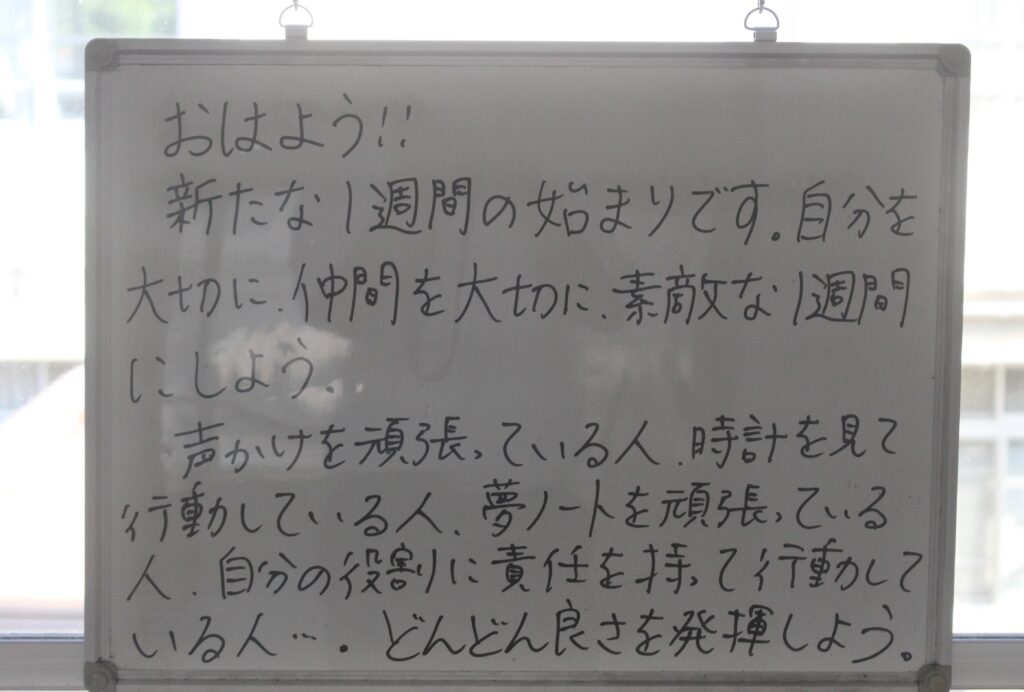 おはよう!!
新たな1週間の始まりです。自分を
大切に、仲間を大切に、素敵な1週間
にしよう。
声かけを頑張っている人、時計を見て
行動している人、夢ノートを頑張っている
人、自分の役割に責任を持って行動して
いる人…。どんどん良さを発揮しよう。